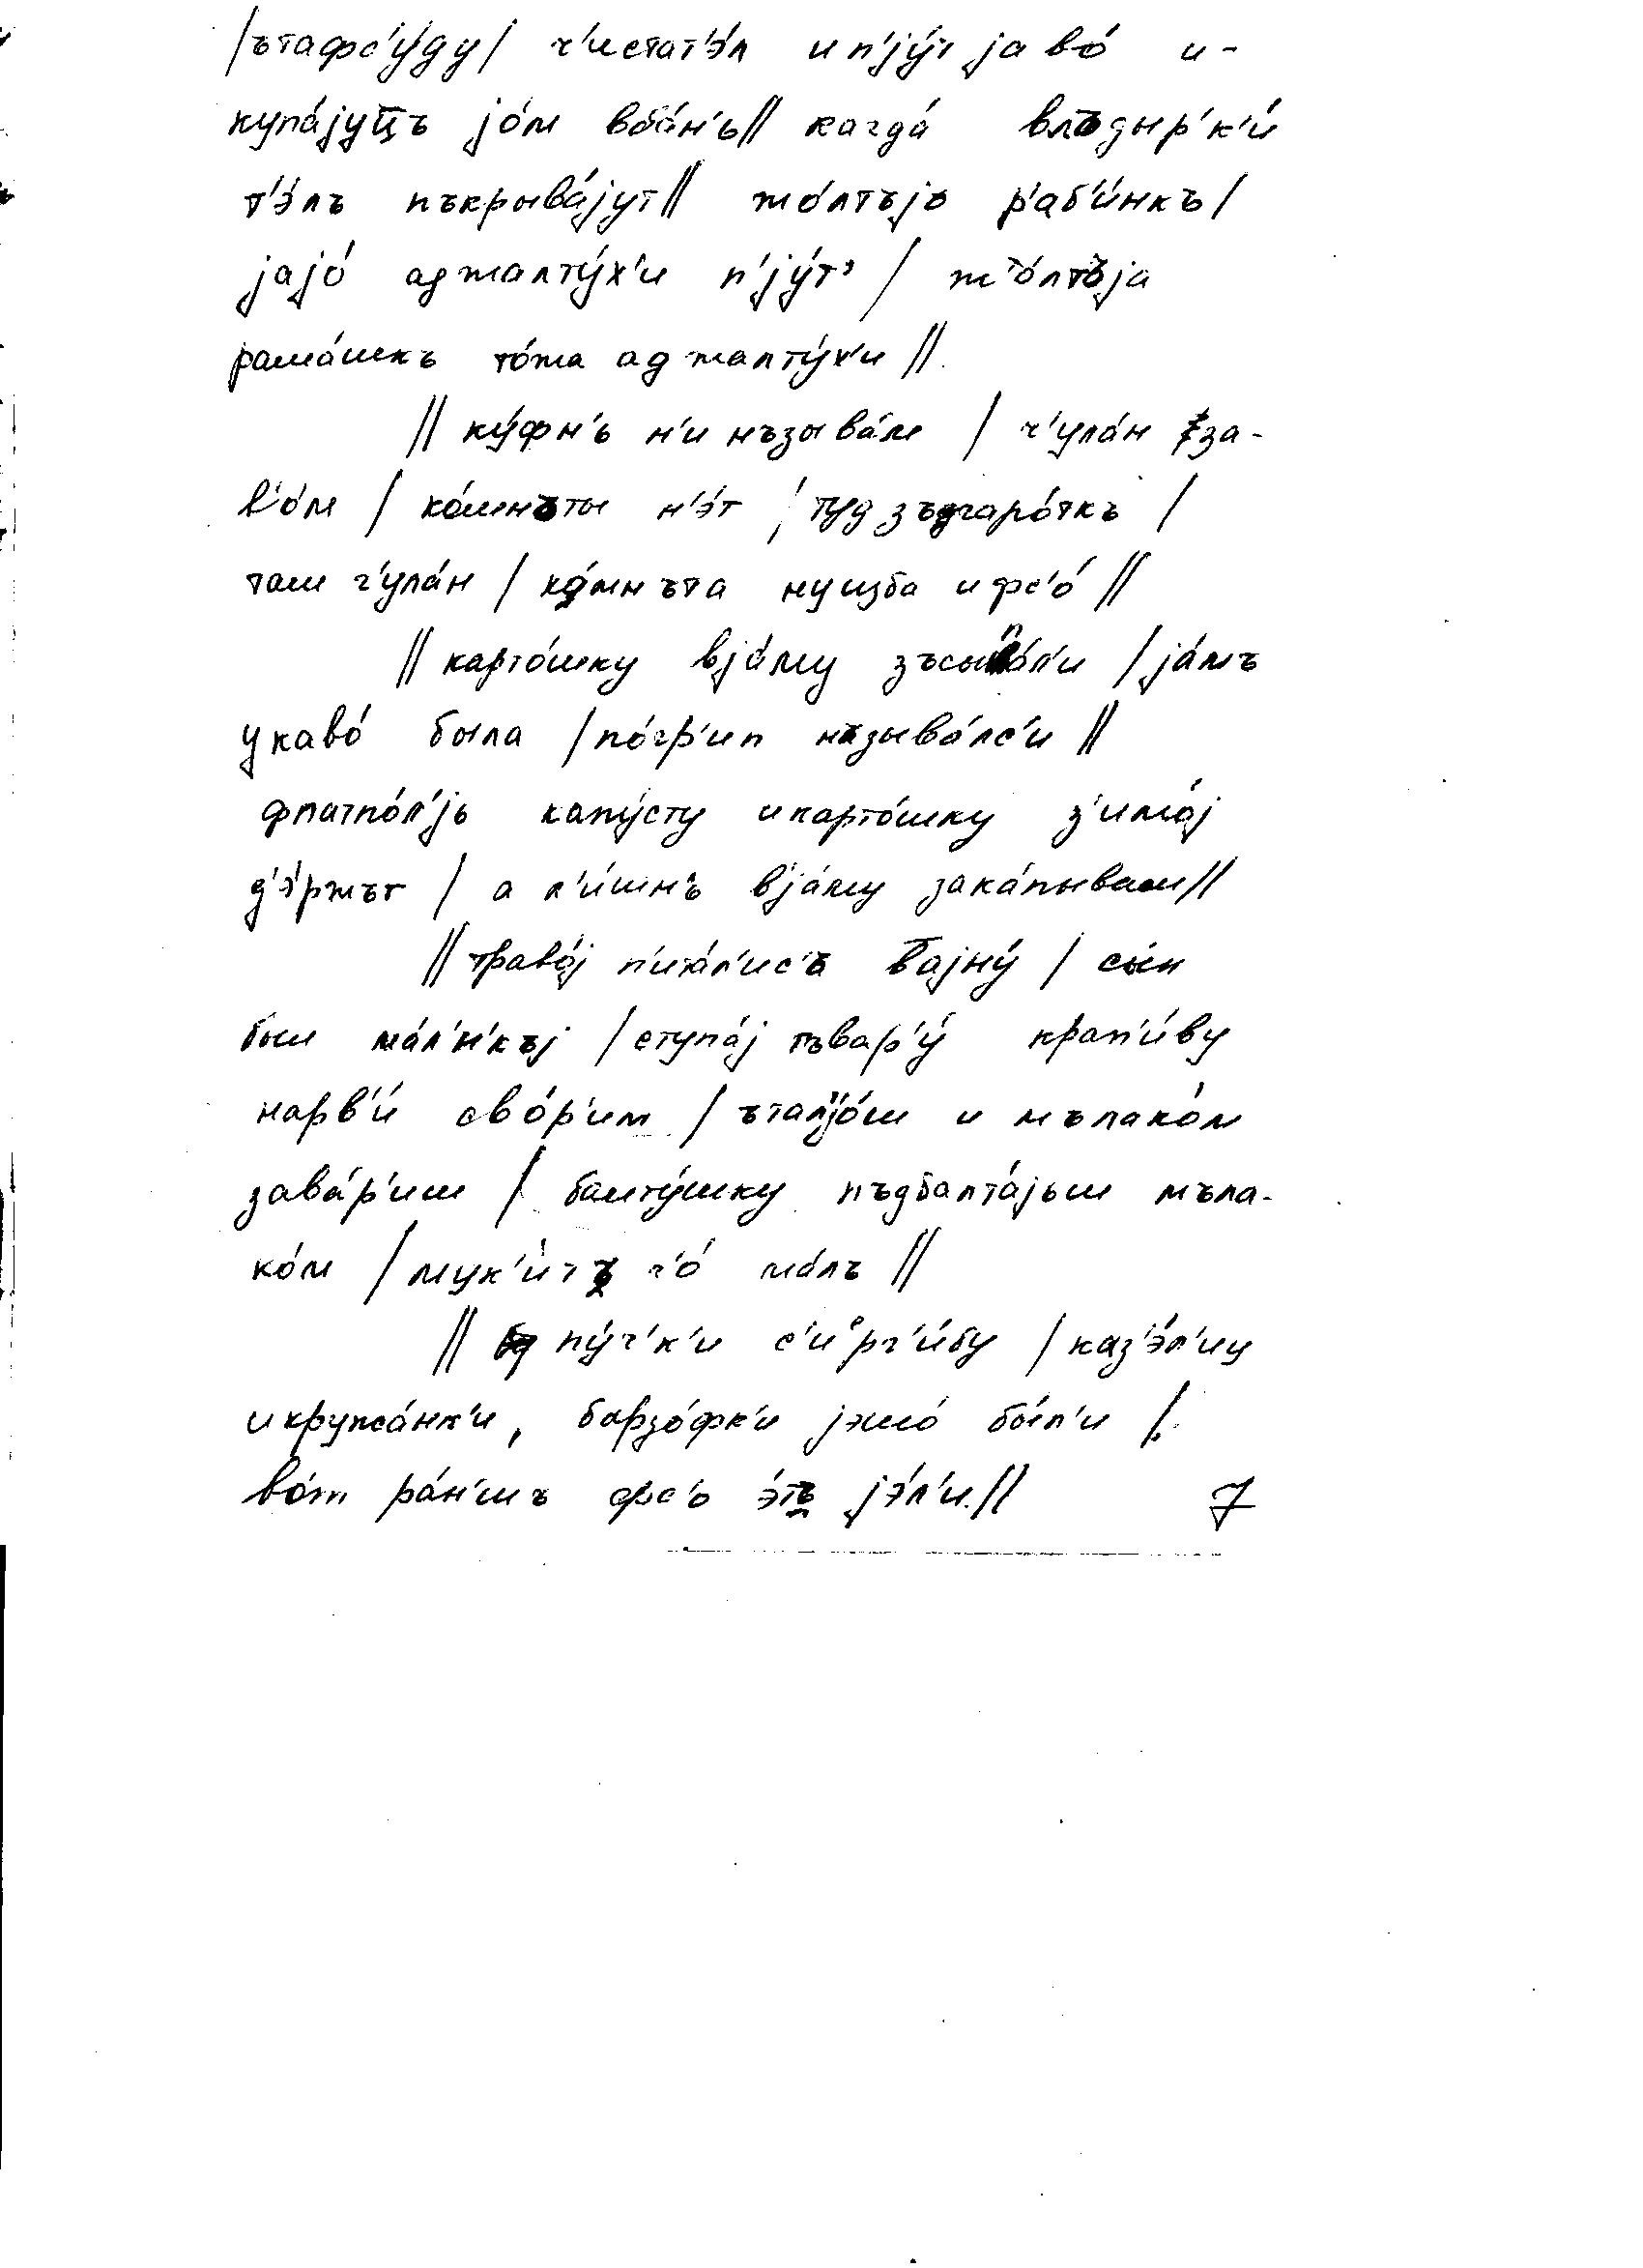 /ътафс'у́ду/ ч'истат'э́л и п'jу́т jаво́ и-
купа́jуц̅ъ jо́м вба́н'ь// кагда́ влъдыр'к'и́
т'э́лъ пъкрыва́jут// жо́лтъjъ р'аб'и́нкъ/
jаjо́ аджалту́х'и п'jу́т' / жо́лтъjа
рама́шкъ то́жа аджалту́х'и //.
// ку́фн'ь н'и нъзыва́м / ч'ула́н за-
в'о́м / ко́мнъты н'э́т / туд зъгаро́ткъ /
там ч'ула́н / ко́мнъта ну изба и фс'о́ //
// карто́шку вjа́му зъсыпа́л'и / jа́мъ
укаво́ была / по́гр'ип нъзыва́лс'и //
фпатпо́л'jь капу́сту икарто́шку з'имо́j
д'э́ржът / а л'и́шн'ь вjа́му зака́пывам //
// траво́j п'ита́л'ис'ъ в̅аjну́ / сы́н
был ма́л'н'къj / ступа́j тъвар'у́ крап'и́ву
нарв'и́ сво́р'им / ътал'jо́ш и мълако́м
зава́р'иш / балту́шку пъдбалта́jьш мъла-
ко́м / мук'и́тъ ч'о́ ма́лъ //
// пу́ч'к'и с'иерг'и́бу / каз'э́л'иц
икружа́нк'и, барзо́фк'и jэшо́ бы́л'и /.
во́т ра́н'шъ фс'о э́тъ jэ́л'и //
7